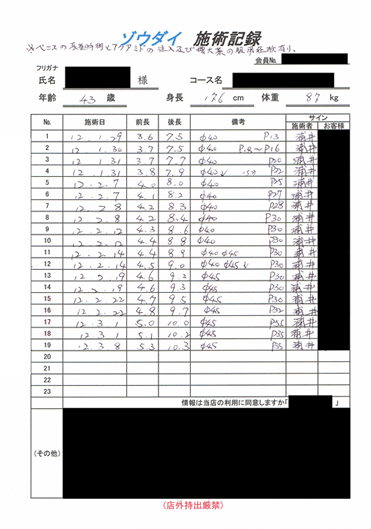 ゾウダイ 施術記録
会員No.
フリガナ
氏名 様 コース名
年齢 43 歳 身長 176 cm 体重 87 kg
No. 施術日 前長 後長 備考 サイン
施術者 お客様
1 12.1.29 3.6 7.5 φ40 P13
2 12.1.30 3.7 7.5 φ40
3 12.1.31 3.7 7.7 φ40 P20
4 12.1.31 3.8 7.9 φ40 P22
5 12.2.7 4.0 8.0 φ40 P25
6 12.2.7 4.1 8.2 φ40 P27
7 12.2.8 4.2 8.3 φ40 P28
8 12.2.8 4.2 8.4 φ40 P30
9 12.2.12 4.3 8.6 φ40 P30
10 12.2.12 4.4 8.8 φ40 P30
11 12.2.14 4.4 8.9 φ40 φ45 P30
12 12.2.14 4.5 9.0 φ40 φ45 P30
13 12.2.19 4.6 9.2 φ45 P30
14 12.2.19 4.6 9.3 φ45 P30
15 12.2.22 4.7 9.5 φ45 P30
16 12.2.22 4.8 9.7 φ45 P32
17 12.3.1 5.0 10.0 φ45 P35
18 12.3.1 5.1 10.2 φ45 P35
19 12.3.8 5.3 10.3 φ45 P35
20
21
22
23
情報は当店の利用に同意しますか「 」
(その他)
(店外持出厳禁)